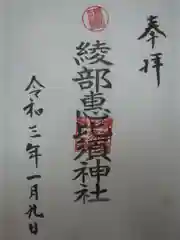 奉拝
綾部惠比須神社
令和三年一月九日